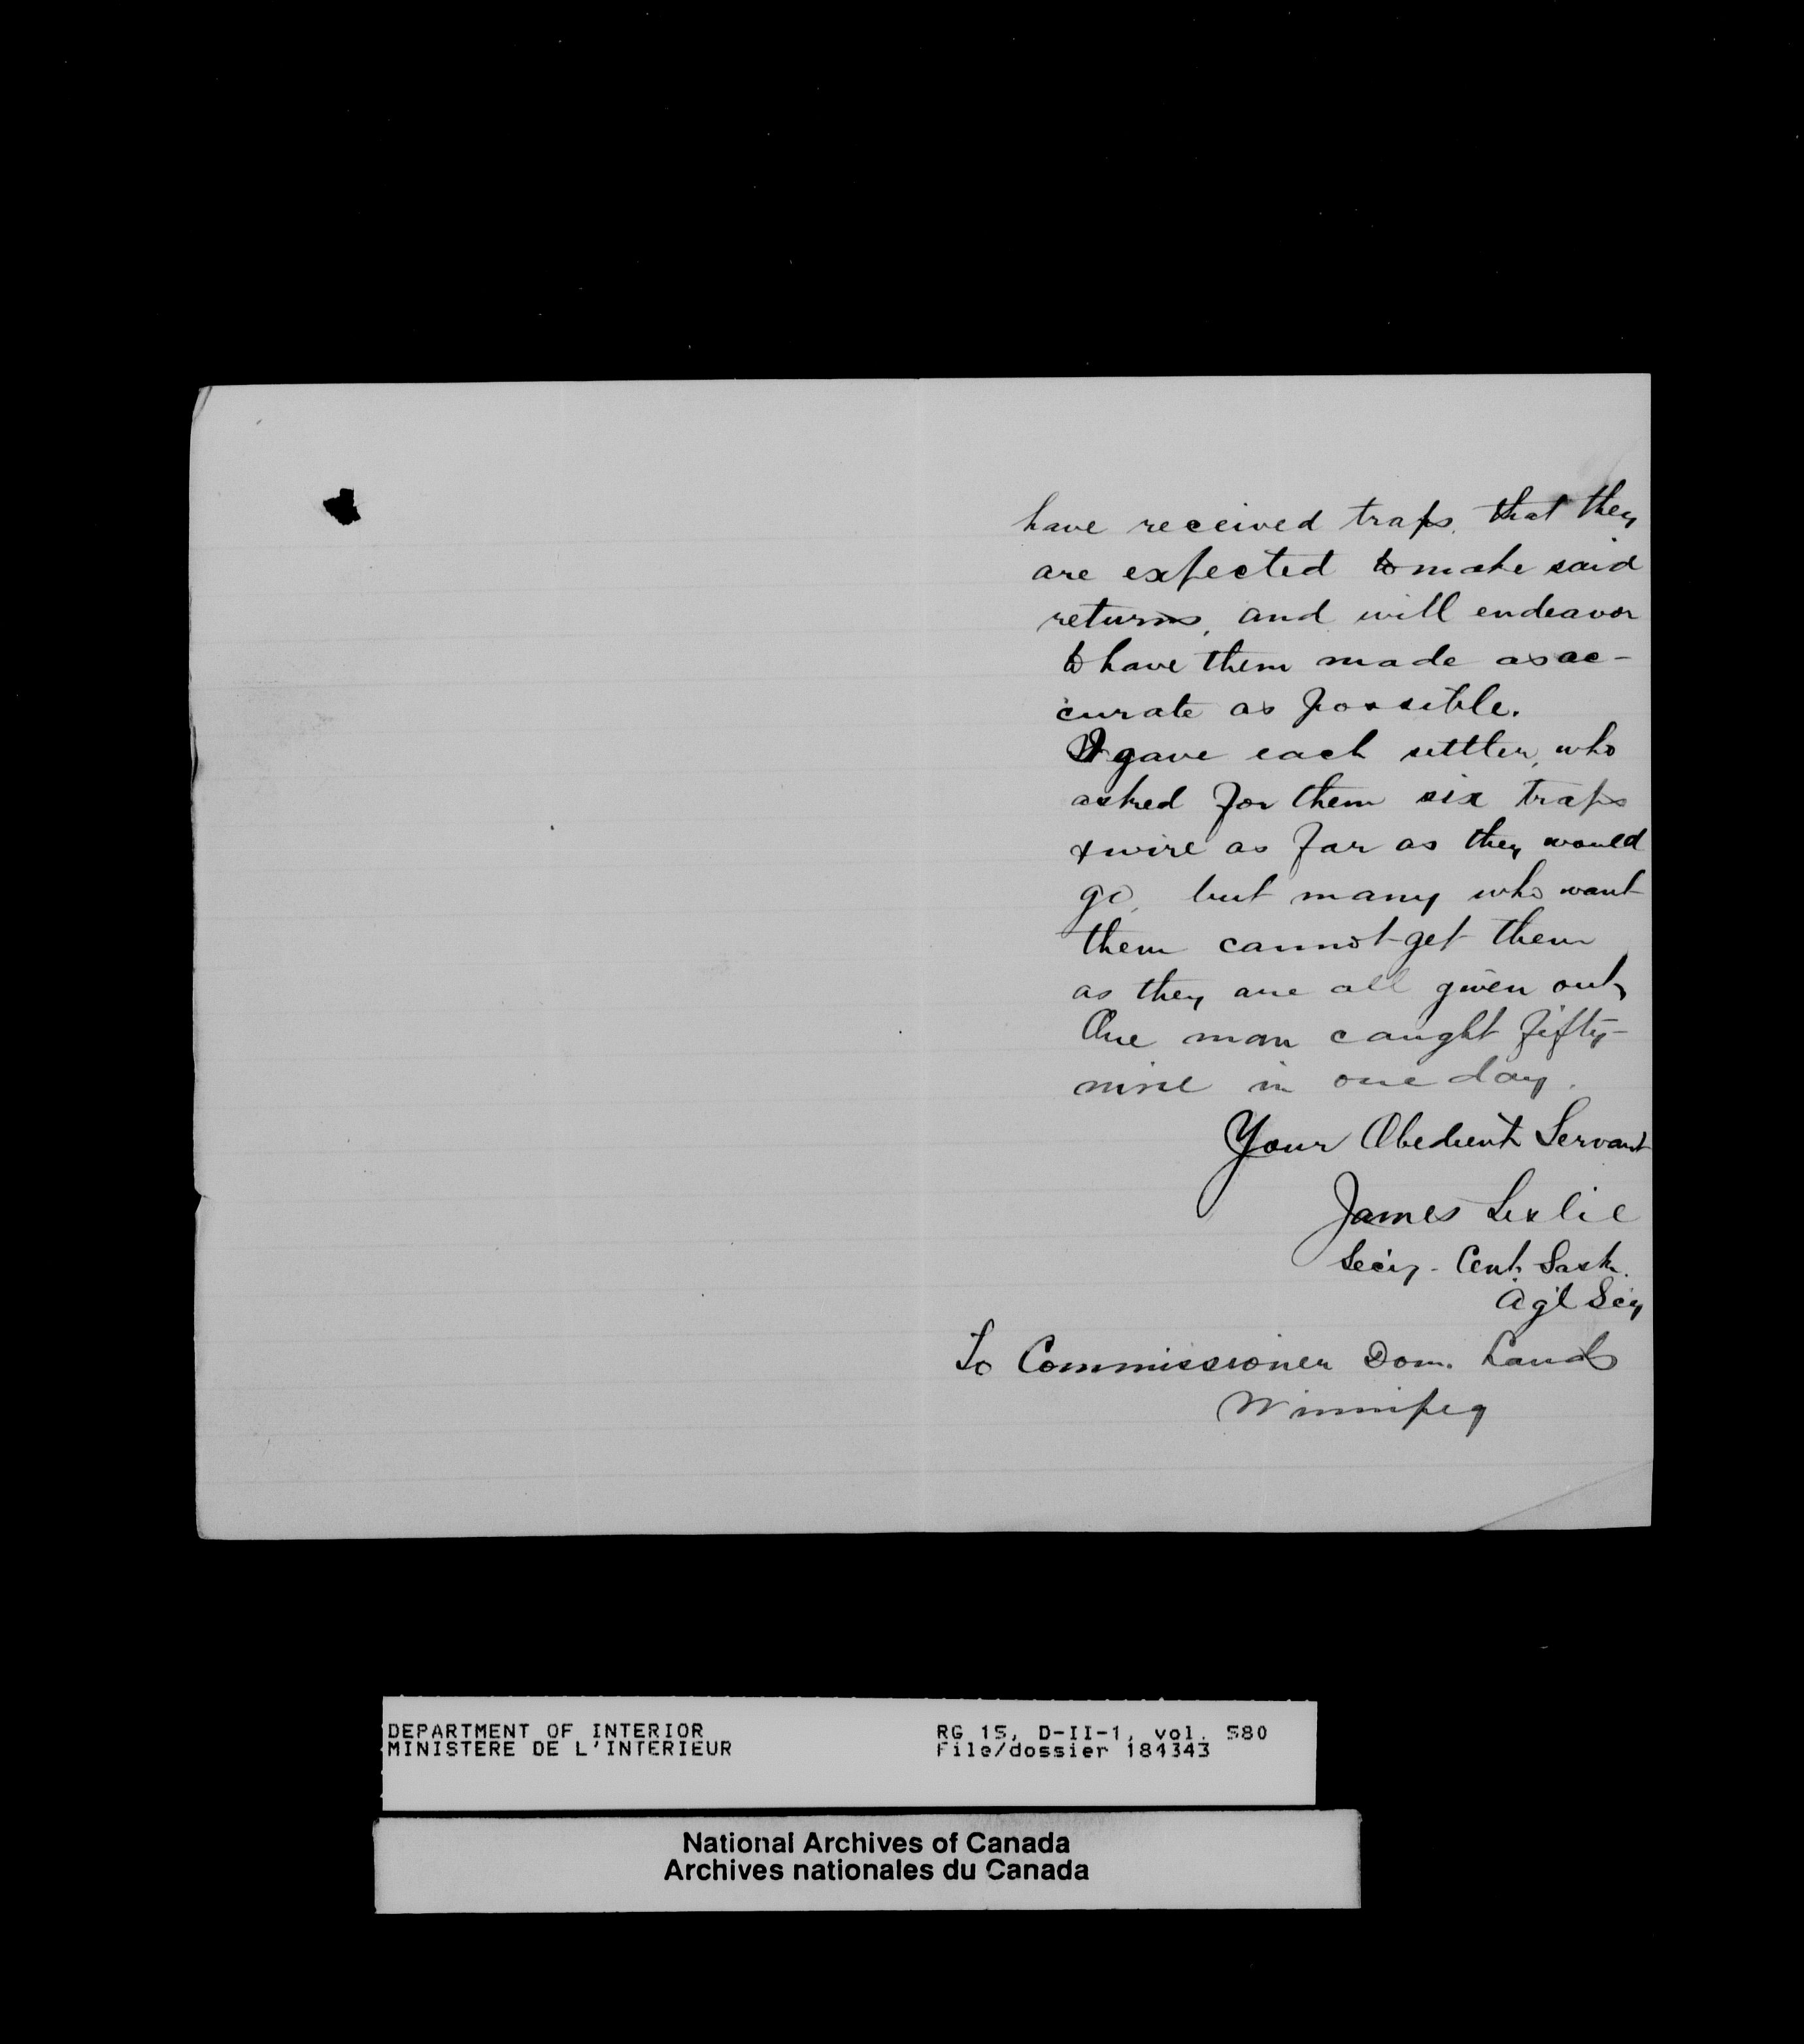 have received traps, that they
are expected to make said
returns, and will endeavor
to have them made as ac-
curate as possible.
I gave each settler, who
asked for them six traps
& wire as far as they would
go, but many who want
them cannot get them
as they are all given out,
One man caught fifty-
nine in one day.
Your Obedient Servant
James Leslie
Sec'y - Cent. Sask.
Ag'l Soc'y
To Commissioner Dom. Lands
Winnipeg
DEPARTMENT OF INTERIOR
MINISTERE DE L'INTERIEUR
RG 15, D-II-1, vol. 580
File/dossier 184343
National Archives of Canada
Archives nationales du Canada